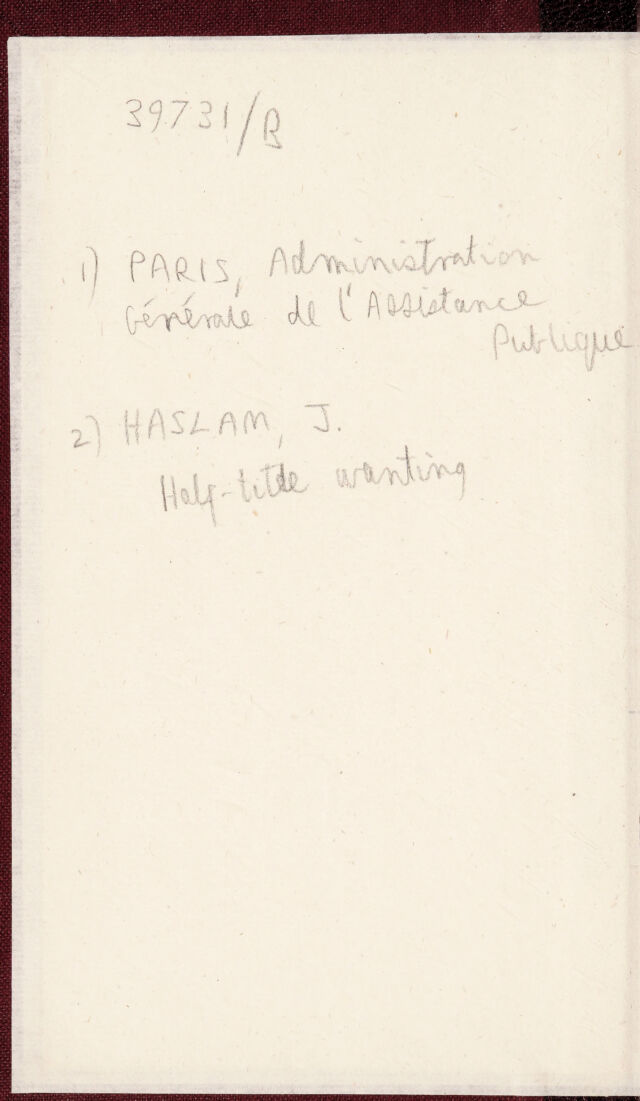 39731/B
1) PARIS, Administration
Générale de l'Assistance
Publique
2) HASLAM, J.
Half-title wanting